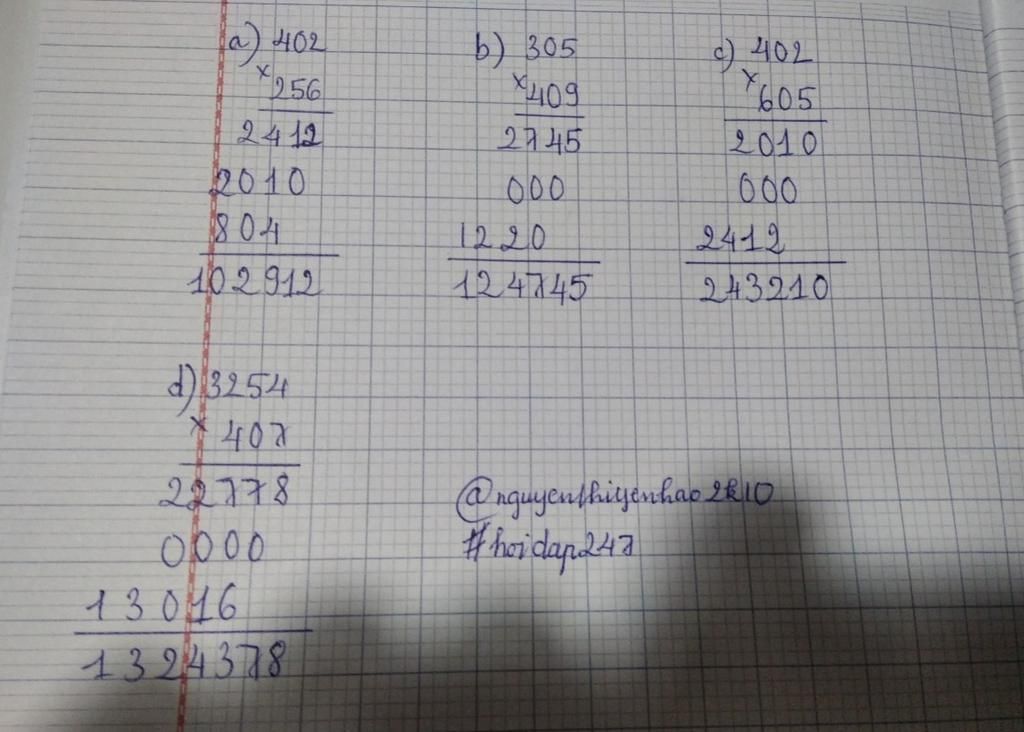 a) 402
× 256
2412
2010
804
102912
b) 305
× 409
2745
000
1220
124745
c) 402
× 605
2010
000
2412
243210
d) 3254
× 407
22778
0000
13016
1324378
@nguyenthiyenhao2k10
#hoidap247